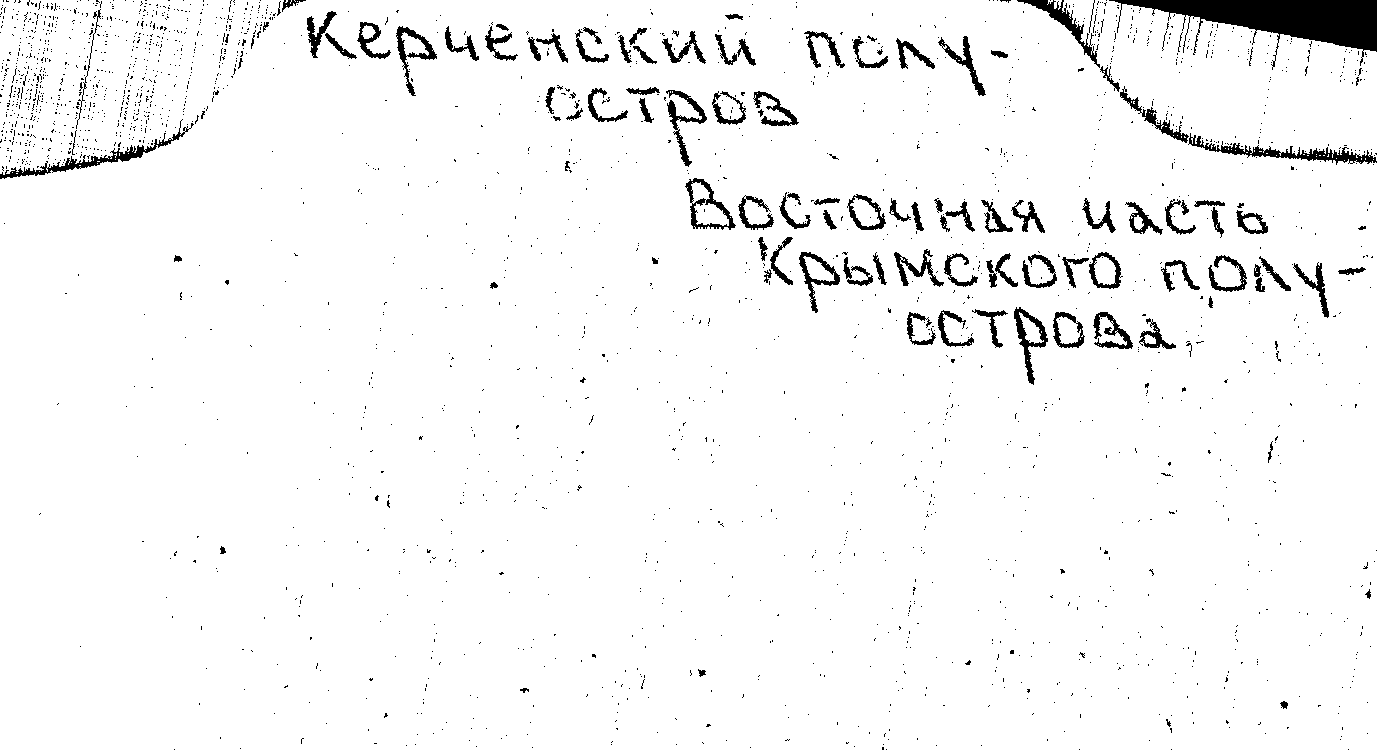 Керченский полу-
остров
Восточная часть
Крымского полу-
острова